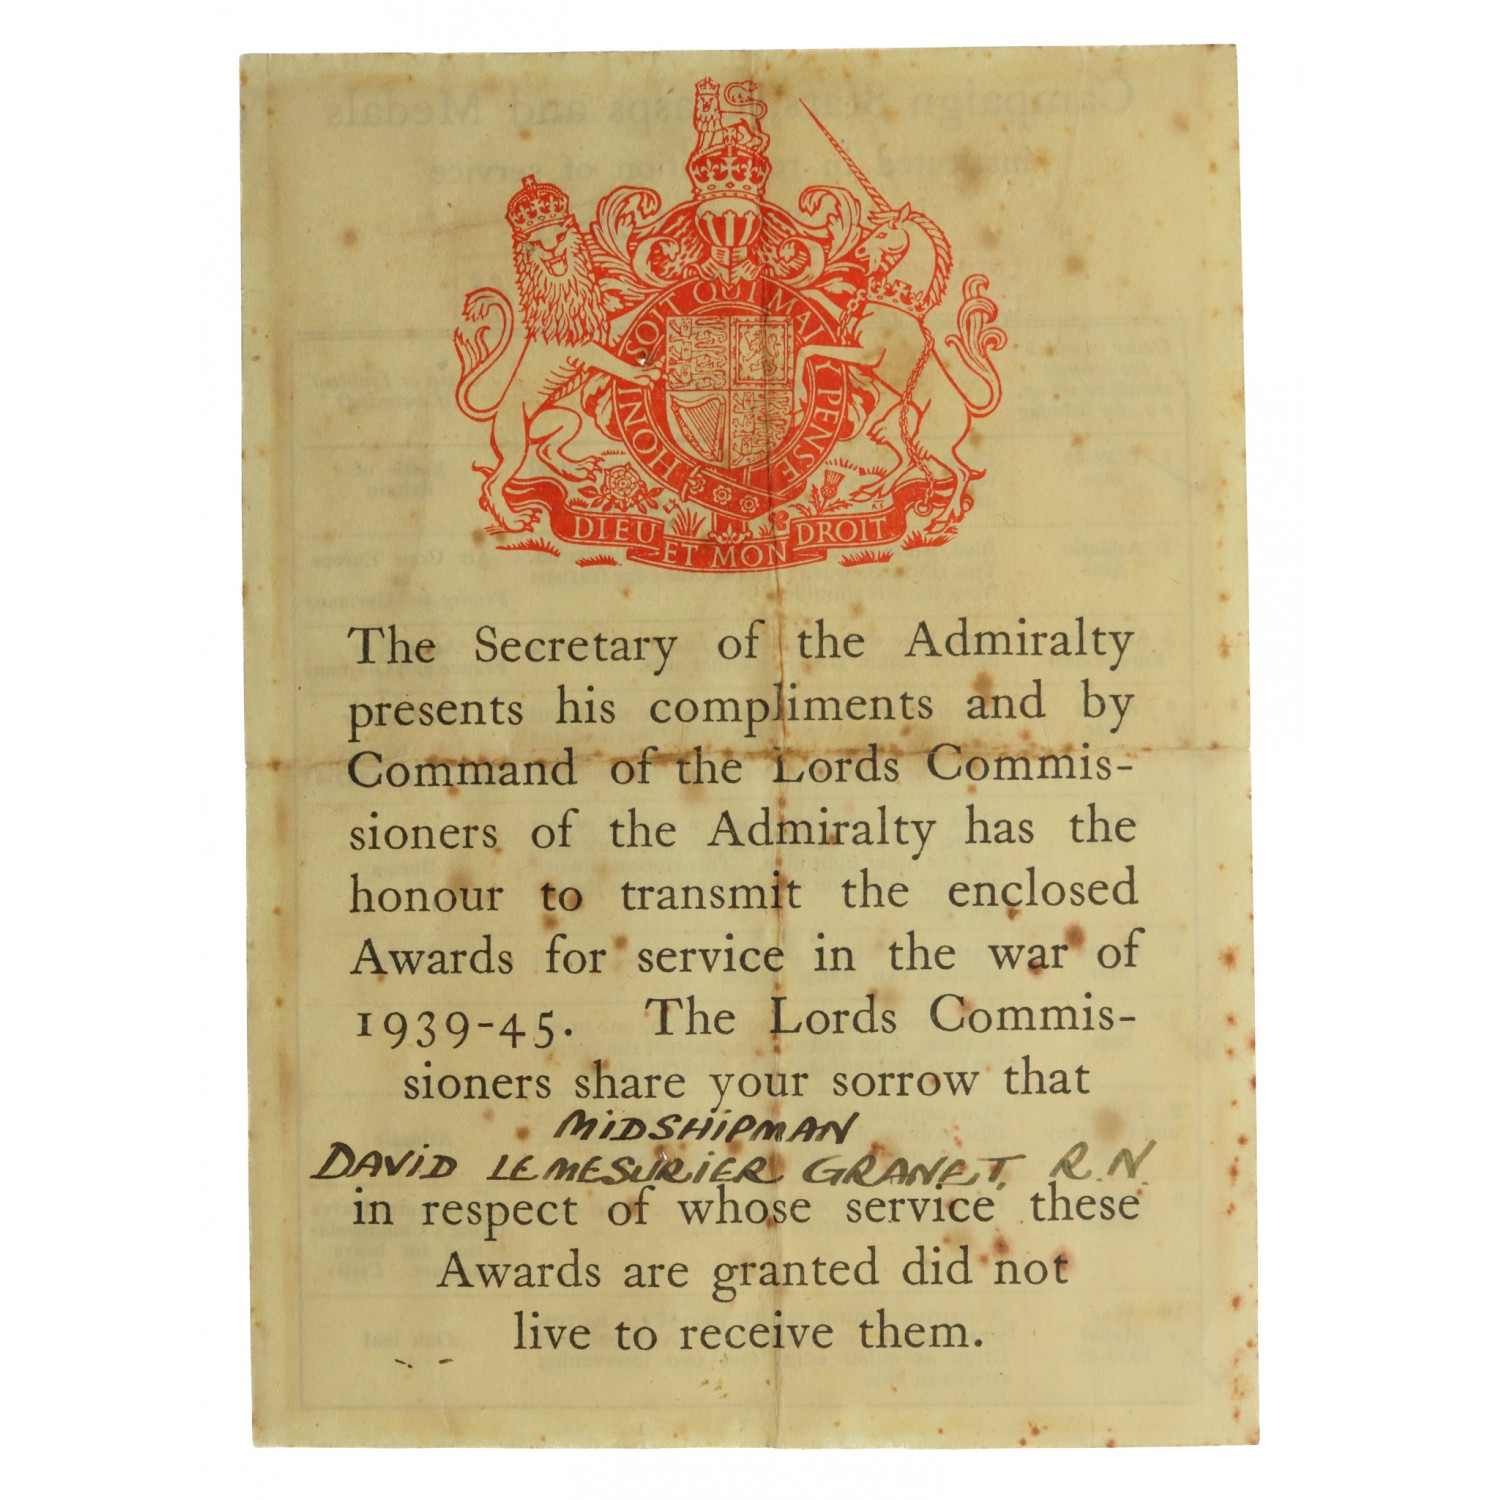 HONI SOIT QUI MAL Y PENSE
DIEU ET MON DROIT
The Secretary of the Admiralty
presents his compliments and by
Command of the Lords Commis-
sioners of the Admiralty has the
honour to transmit the enclosed
Awards for service in the war of
1939-45. The Lords Commis-
sioners share your sorrow that
MIDSHIPMAN
DAVID LEMESURIER GRANET. R.N.
in respect of whose service these
Awards are granted did not
live to receive them.